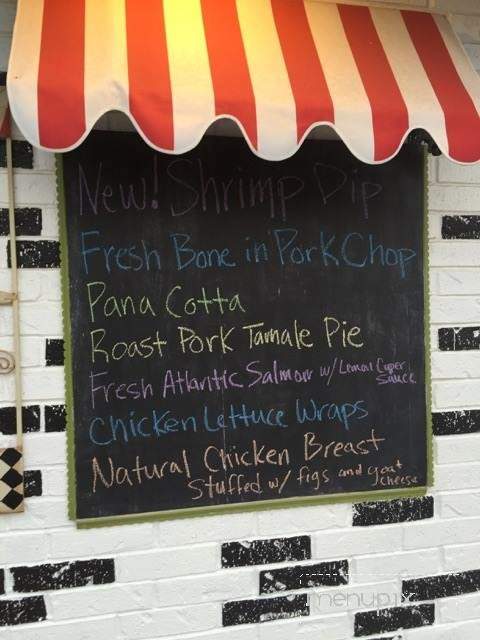 New! Shrimp Dip
Fresh Bone in Pork Chop
Pana Cotta
Roast Pork Tamale Pie
Fresh Atlantic Salmon w/ Lemon Caper
Sauce
Chicken Lettuce Wraps
Natural Chicken Breast
Stuffed w/ figs and goat
cheese
menupix